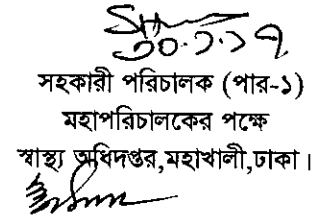 ৩০.১.১৭
সহকারী পরিচালক (পার-১)
মহাপরিচালকের পক্ষে
স্বাস্থ্য অধিদপ্তর,মহাখালী,ঢাকা।